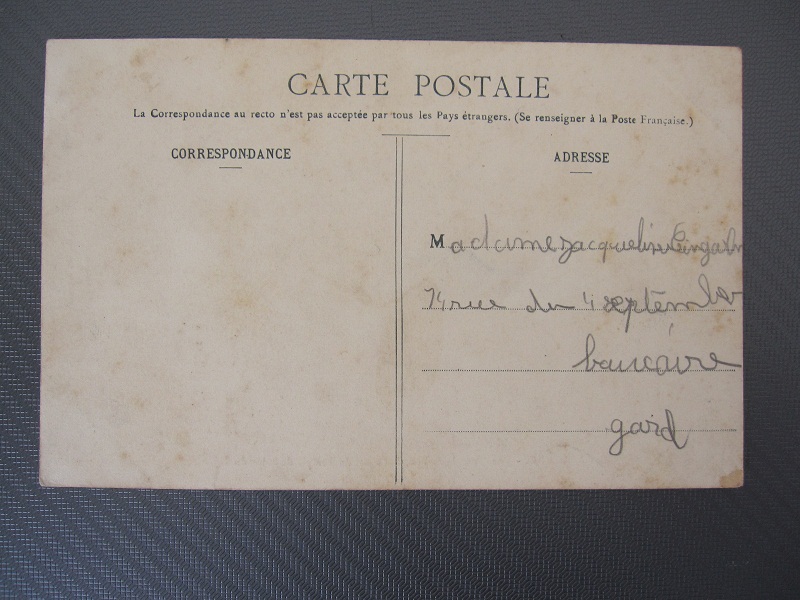 CARTE POSTALE
La Correspondance au recto n'est pas acceptée par tous les Pays étrangers. (Se renseigner à la Poste Française.)
CORRESPONDANCE
ADRESSE
Madame Jacqueline
74 rue du 4 septembre
baucaire
gard